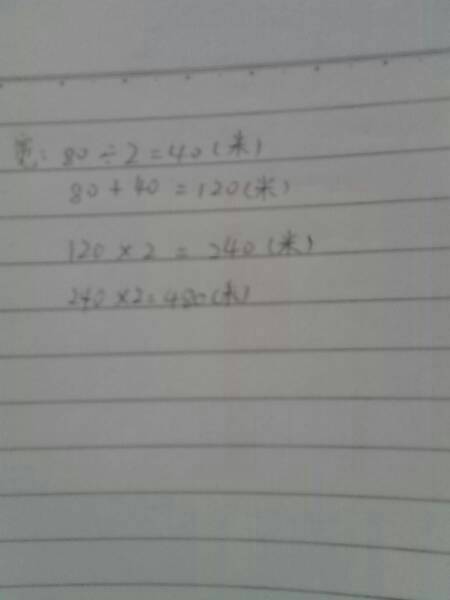 宽：80÷2=40(米)
80+40=120(米)
120×2=240(米)
240×2=480(米)